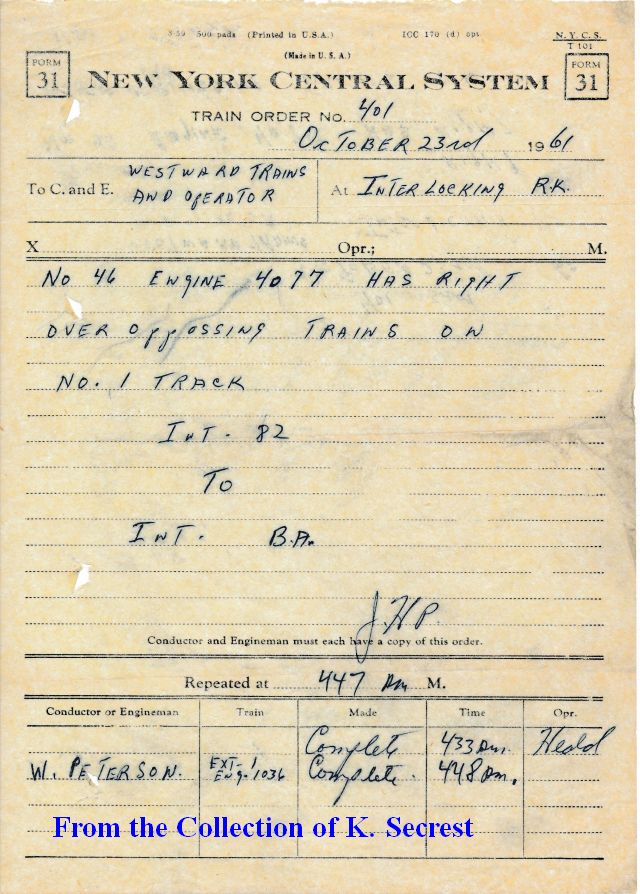 3-59 500 pads (Printed in U.S.A.) ICC 170 (d) ops N.Y.C.S.
(Made in U.S.A.) T 101
FORM 31 NEW YORK CENTRAL SYSTEM FORM 31
TRAIN ORDER NO. 401
OCTOBER 23rd 1961
To C. and E. WESTWARD TRAINS AND OPERATOR At INTERLOCKING R.K.
X Opr.; M.
NO 46 ENGINE 4077 HAS RIGHT
OVER OPPOSSING TRAINS ON
NO. 1 TRACK
INT. 82
TO
INT. B.A.
J.H.P.
Conductor and Engineman must each have a copy of this order.
Repeated at 447 Am M.
Conductor or Engineman Train Made Time Opr.
Complete 433 Am. Hedd
W. PETERSON. EXT. 1 ENG. 1036 Complete. 448 Am.
From the Collection of K. Secrest